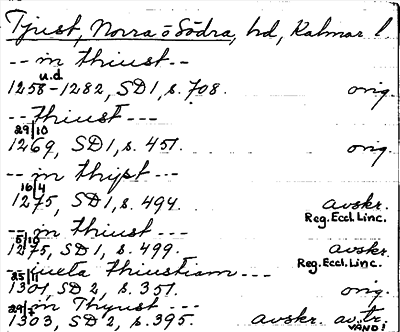 Tjust, Norra o Södra, hd, Kalmar l
-- in thiust --
u.d.
1258-1282, SD1, s. 708. orig.
-- thiust ---
29/10
1269, SD1, s. 451. orig.
-- in thypt ---
16/4
1275, SD1, s. 494. avskr.
Reg. Eccl. Linc.
-- in thiust ---
5/10
1275, SD1, s. 499. avskr.
Reg. Eccl. Linc.
-- thiustiam ---
25/11
1301, SD2, s. 351. orig.
-- in Thyust ---
29/7
1303, SD2, s. 395. avskr. av tr.
VÄND!